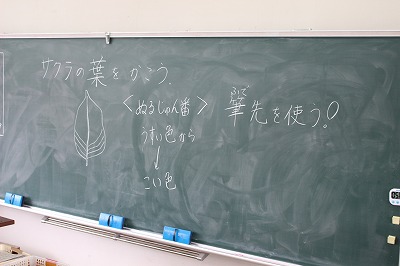 サクラの葉をかこう。
<ぬるじゅん番>
うすい色から
↓
こい色
ふで
筆先を使う!